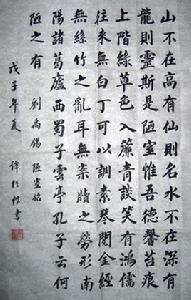 山不在高有仙則名水不在深有
龍則靈斯是陋室惟吾德馨苔痕
上階綠草色入簾青談笑有鴻儒
往來無白丁可以調素琴閱金經
無絲竹之亂耳無案牘之勞形南
陽諸葛廬西蜀子雲亭孔子云何
陋之有 劉禹錫 陋室銘
戊子年夏 書